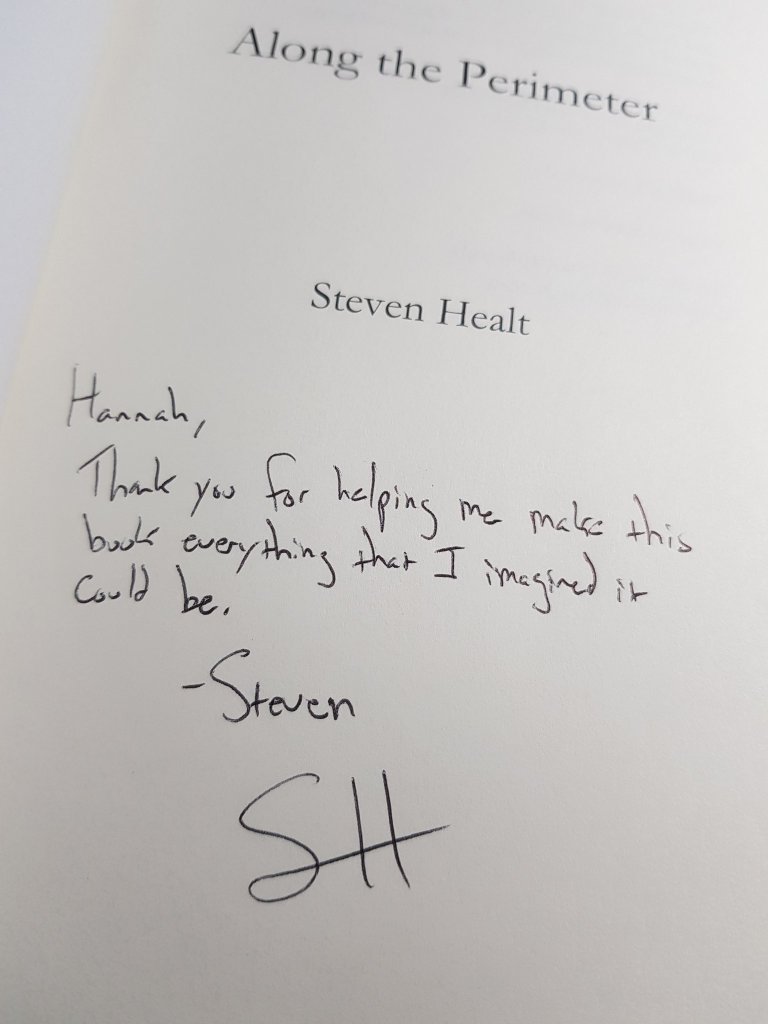 Along the Perimeter
Steven Healt
Hannah,
Thank you for helping me make this
book everything that I imagined it
could be.
-Steven
SH